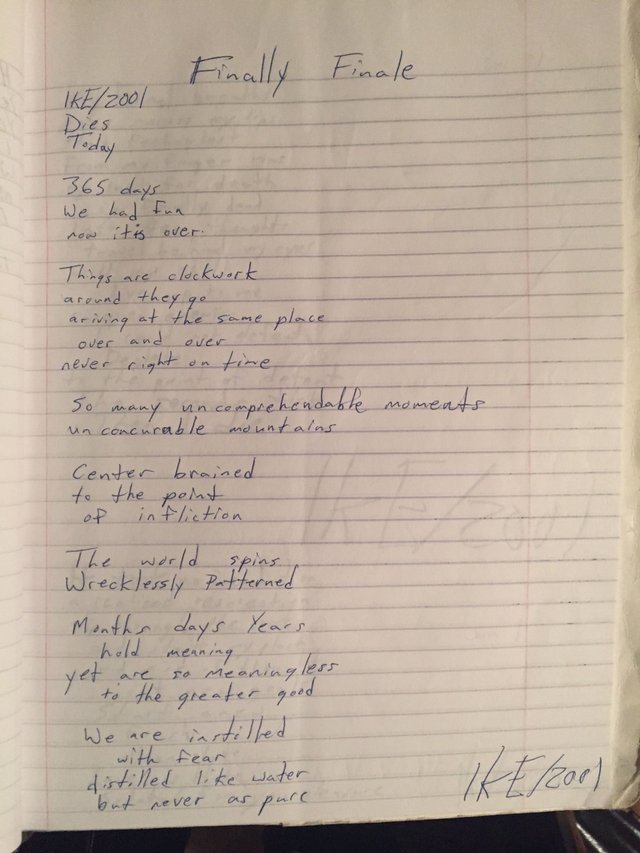 Finally Finale
IKE/2001
Dies
Today
365 days
We had fun
now it is over.
Things are clockwork
around they go
ariving at the same place
over and over
never right on time
So many un comprehendable moments
un concurable mountains
Center brained
to the point
of infliction
The world spins
Wrecklessly Patterned
Months days Years
hold meaning
yet are so meaningless
to the greater good
We are instilled
with fear
distilled like water
but never as pure
IKE/2001